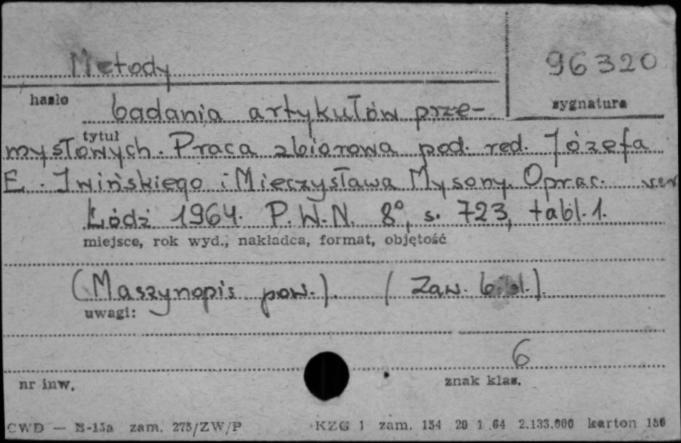 Metody
96320
hasło
sygnatura
badania artykułów prze-
tytuł
mysłowych. Praca zbiorowa pod. red. Józefa
E. Iwińskiego i Mieczysława Mysony. Oprac.
Łódź 1964. P.W.N. 8°, s. 723, tabl. 1.
miejsce, rok wyd., nakładca, format, objętość
(Maszynopis pow.). (Zaw. bibl.).
uwagi:
6
nr inw.
znak klas.
CWD — B-15a zam. 275/ZW/P
KZG 1 zam. 154 20 1 64 2.133.000 karton 150